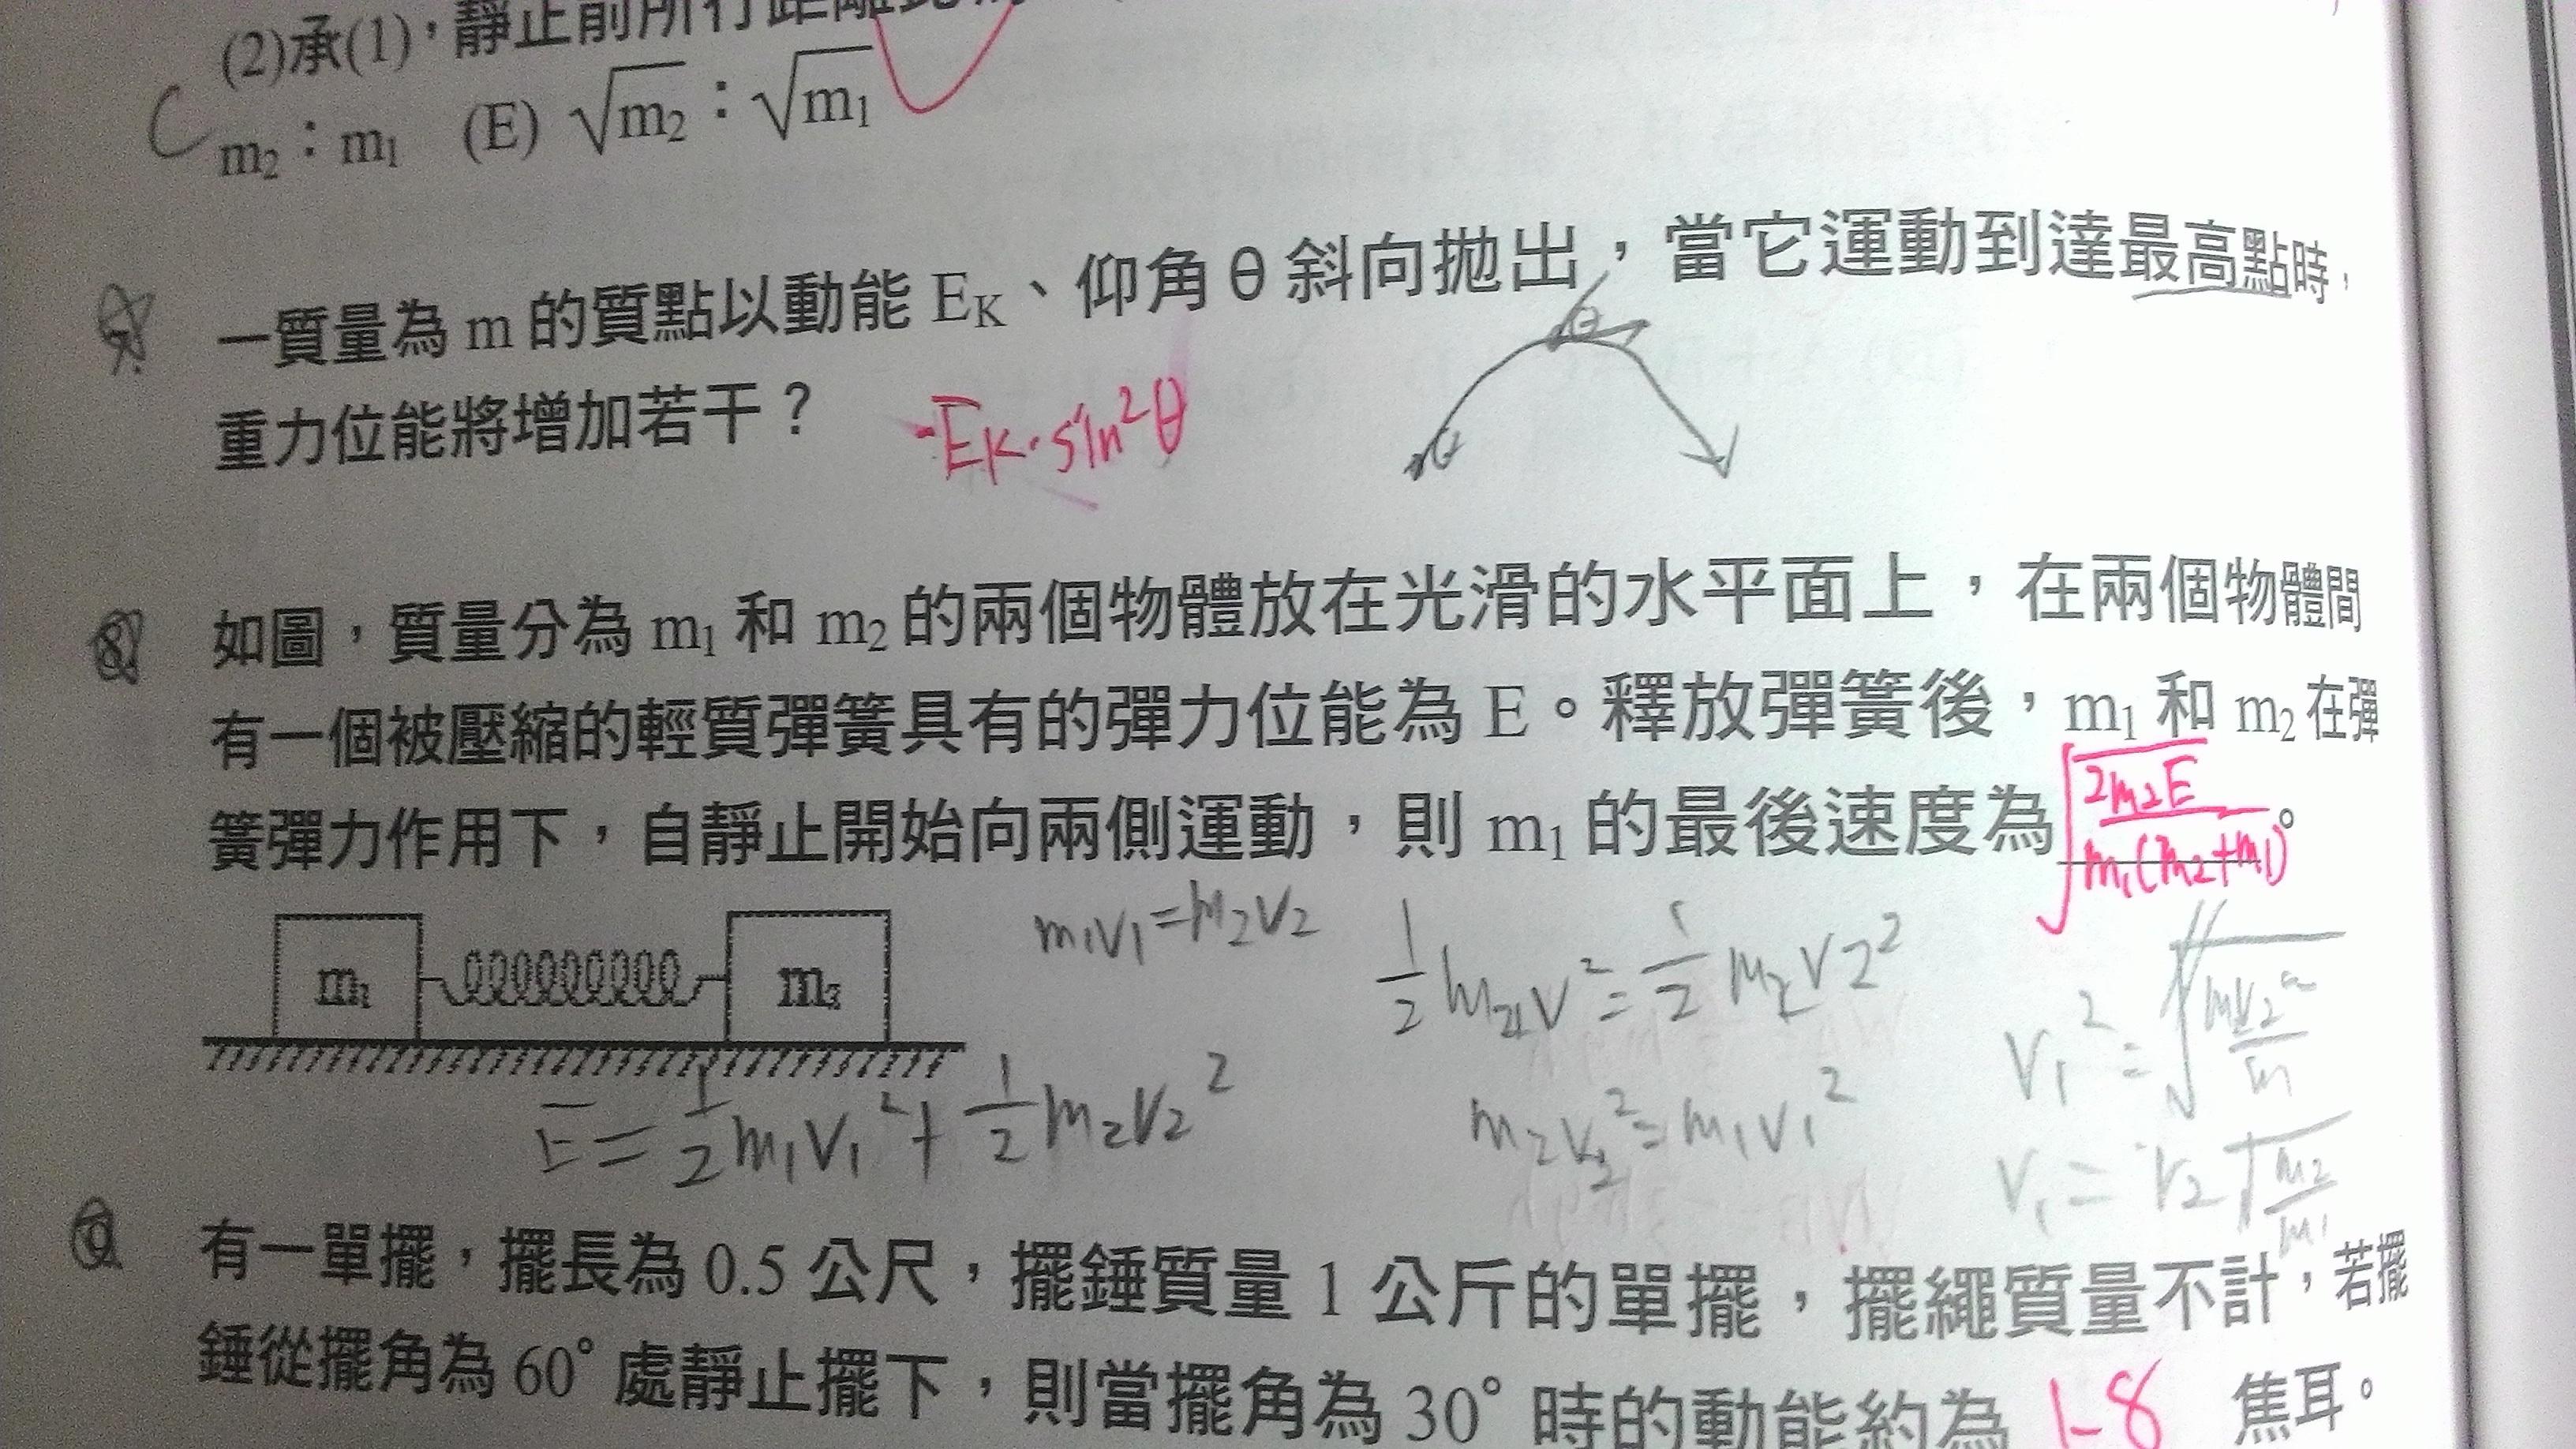 (2)承(1)，靜止前所行距離
C
m₂：m₁　(E) √m₂：√m₁
7. 一質量為 m 的質點以動能 EK、仰角 θ 斜向拋出，當它運動到達最高點時，
重力位能將增加若干？ EK·sin²θ
θ
θ
8. 如圖，質量分為 m₁ 和 m₂ 的兩個物體放在光滑的水平面上，在兩個物體間
有一個被壓縮的輕質彈簧具有的彈力位能為 E。釋放彈簧後，m₁ 和 m₂ 在彈
簧彈力作用下，自靜止開始向兩側運動，則 m₁ 的最後速度為 √(2m₂E/m₁(m₂+m₁))。
m₁ m₂
m₁v₁=m₂v₂
E=½m₁v₁²+½m₂v₂²
½m v²=½m₂v₂²
m₂v₂²=m₁v₁²
v₁²=
v₁=v₂√(m₂/m₁)
9. 有一單擺，擺長為 0.5 公尺，擺錘質量 1 公斤的單擺，擺繩質量不計，若擺
錘從擺角為 60° 處靜止擺下，則當擺角為 30° 時的動能約為 1.8 焦耳。